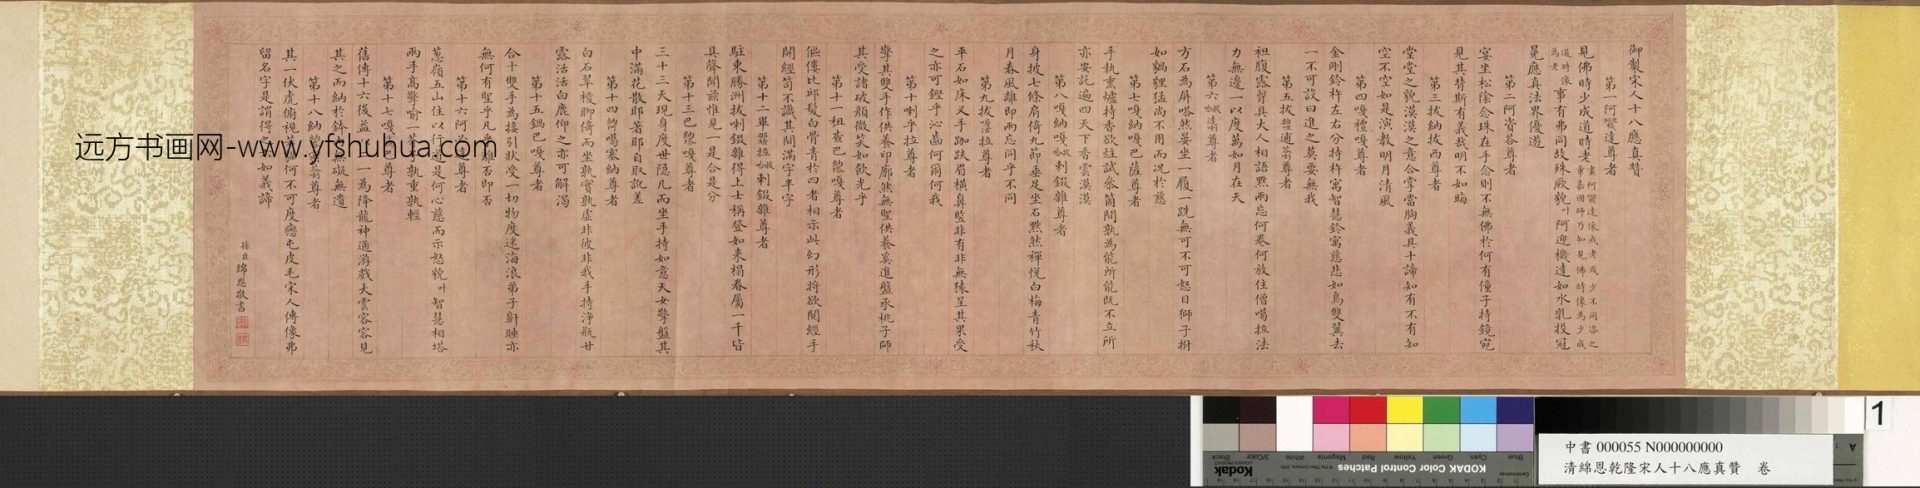 御製宋人十八應真贊
第一阿㘕達尊者
見佛時少成道時老
事有弗同故殊厥貌
阿迎機達如水乳投冠
冕應真法界優遊
第二阿資答尊者
宴坐松陰念珠在手念則不無佛於何有僮子持鏡宛
見其背斯有義哉明不如晦
第三拔納拔西尊者
堂堂之貌漠漠之意合掌當胸義具十諦如有不有如
空不空如是演教明月清風
第四嘎禮嘎尊者
金剛鈴杵左右分持杵寓智慧鈴寓慈悲如鳥雙翼去
一不可設曰進之莫要無我
尊者
袒腹露胷具大人相語黙兩忘何卷何放住僧噶拉法
力無邊一以度萬如月在天
第六
尊者
方石為屏嗒然晏坐一履一跣無可不可怒目獅子拊
如貓貍猛尚不用而况於慈
第七嘎納嘎巴薩尊者
手執熏爐持香欲炷試叅箇聞孰為能所能既不立所
亦安託遍四天下香雲漠漠
第八嘎納嘎
尊者
身披七條肩倚九節垂足坐石黙然禪悦白梅青竹秋
月春風離即兩忘同乎不同
第九拔
拉尊者
平石如床叉手跏趺眉橫鼻監非有非無猿呈其果受
之亦可鏗乎沁齒何爾何我
第十喇乎拉尊者
擎其雙手作供養印廓然無聖供養奚進盤承桃子師
其受諸破顔微笑如飲光乎
第十一租查巴
嘎尊者
傴僂比邱髮白骨青於四者相示此幻形將欲開經手
開經笥不識其開滿字半字
第十二畢
拉
尊者
駐東勝洲拔喇錣雜得上士稱登如來榻眷屬一千皆
具聲聞兹惟見一是合是分
第十三巴
嘎尊者
三十三天現身度世隱几而坐手持如意天女擎盤其
中滿花散耶著耶自取訛差
第十四
噶塞納尊者
白石翠稜聊倚而坐孰實孰虚非彼非我手持淨瓶甘
露活活白鹿仰之亦可解渴
第十五鍋巴嘎尊者
合十雙手為接引狀受一切物度迷海浪弟子鼾睡亦
無何有聖乎凡乎離否即否
第十六阿
尊者
蔥嶺五山住以行
是何心慈而示怒貌
智慧相塔
兩手高擎喻一
孰重孰輕
第十七嘎
巴
尊者
舊傳十六後益
一為降龍神通游戲大雲容容見
其之而納於鉢
無礙無遺
第十八納
尊者
其一伏虎俯視
何不可度戀屯皮毛宋人傳像弗
留名字是謂得
如義諦
孫臣綿恩敬書
远方书画网-www.yfshuhua.com
KODAK Color Control Patches
Kodak
Black
3/Color
White
Magenta
Red
Yellow
Green
Cyan
Blue
1
A
中書 000055 N000000000
清綿恩乾隆宋人十八應真贊 卷